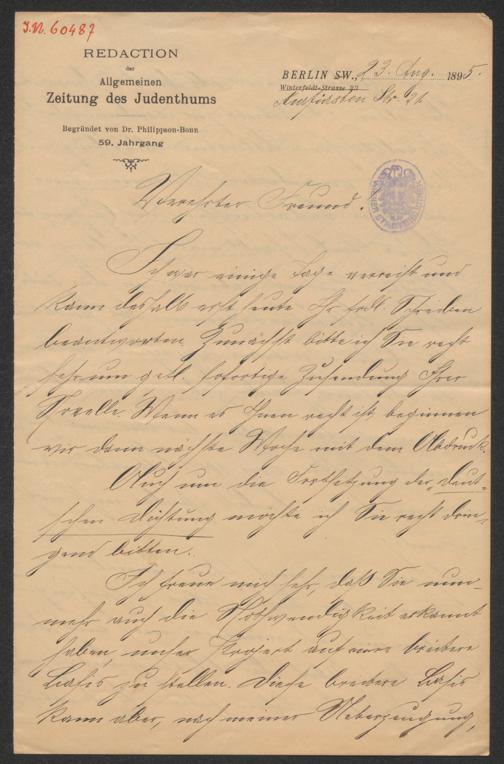 I.N. 60487
REDACTION
der
Allgemeinen
Zeitung des Judenthums
Begründet von Dr. Philippson-Bonn
59. Jahrgang
BERLIN SW., 23. Aug. 1895.
Winterfeldt-Strasse
Str. 21
Verehrter Freund.
Ich war einige Tage verreist und
kann deshalb erst heute Ihr frdl. Schreiben
beantworten. Zunächst bitte ich Sie recht
sehr um gefl. sofortige Zusendung Ihrer
Novelle. Wenn es Ihnen recht ist, beginnen
wir dann nächste Woche mit dem Abdruck.
Auch um die Fortsetzung der „Deut-
schen Dichtung" möchte ich Sie recht drin-
gend bitten.
Ich freue mich sehr, daß Sie nun-
mehr auch die Nothwendigkeit erkannt
haben, unser Project auf eine breitere
Basis zu stellen. Diese breitere Basis
kann aber, nach meiner Ueberzeugung,